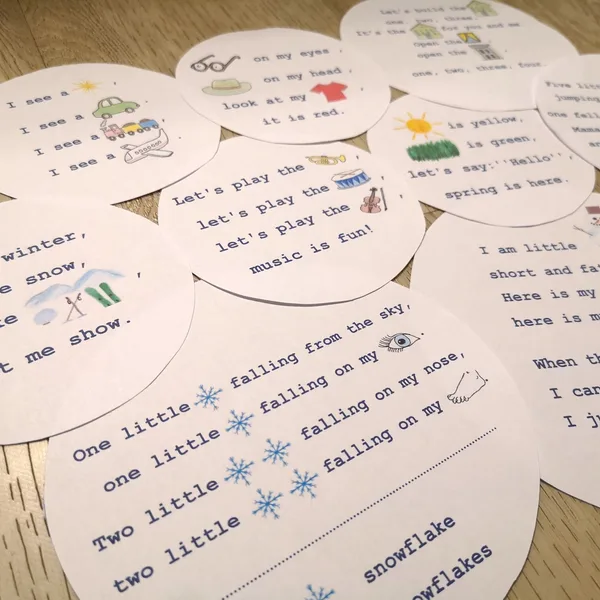 I see a ,
I see a ,
I see a ,
I see a .
on my eyes,
on my head,
look at my ,
it is red.
Let's build the
one, two, three,
It's the for you and me
open the
open the
one, two, three, four
jumping
one fell
is yellow,
is green,
let's say:"Hello",
spring is here.
Let's play the ,
let's play the ,
let's play the ,
music is fun!
winter,
snow,
,
me show.
I am little
short and
Here is my
here is
When
I
I
One little falling from the sky,
one little falling on my .
Two little falling on my nose,
two little falling on my
snowflake